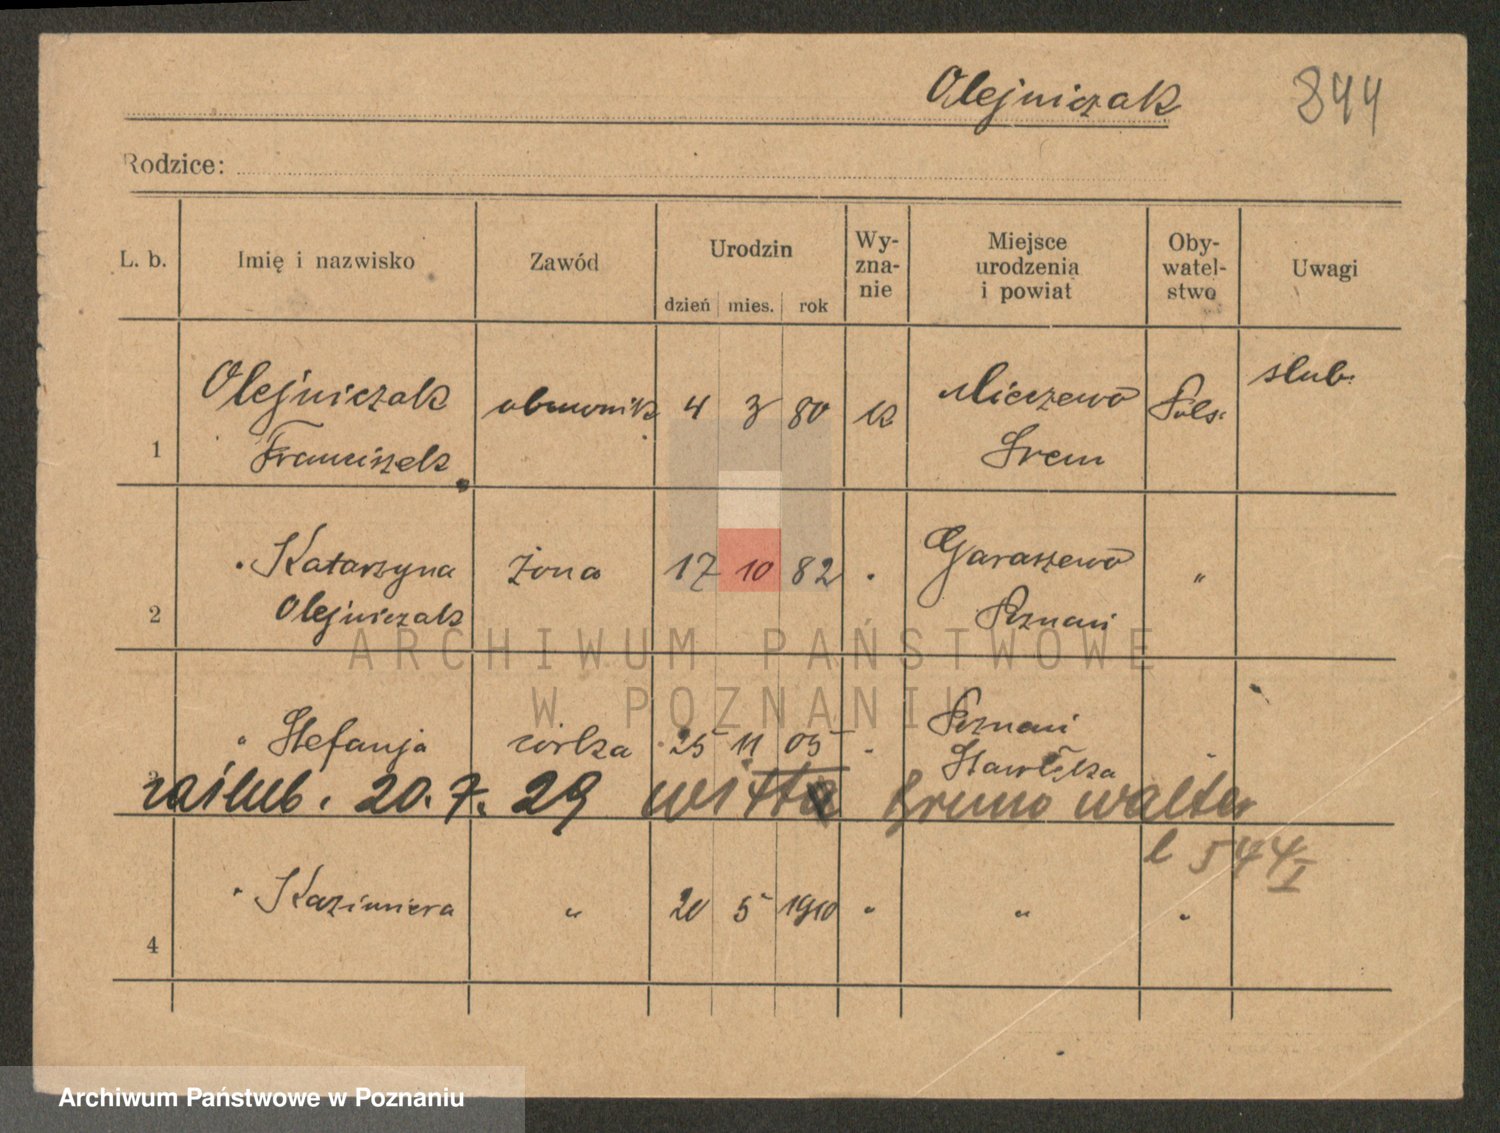 Olejniczak 844
Rodzice:
L. b. Imię i nazwisko Zawód Urodzin Wy-zna-nie Miejsce urodzenia i powiat Oby-watel-stwo Uwagi
dzień mies. rok
1 Olejniczak 4 3 80 k Miczewo Pols. slub.
Franciszek Srem
Katarzyna żona 17 10 82 Garaszewo "
2 Olejniczak Poznań
" Stefanja córka 25 11 05 " Poznań
3 Stawicka
zaślub. 20.7.29 Witta Bruno Walter
l 544 I
" Kazimiera " 20 5 1910 " " "
4
ARCHIWUM PAŃSTWOWE
W POZNANIU
Archiwum Państwowe w Poznaniu